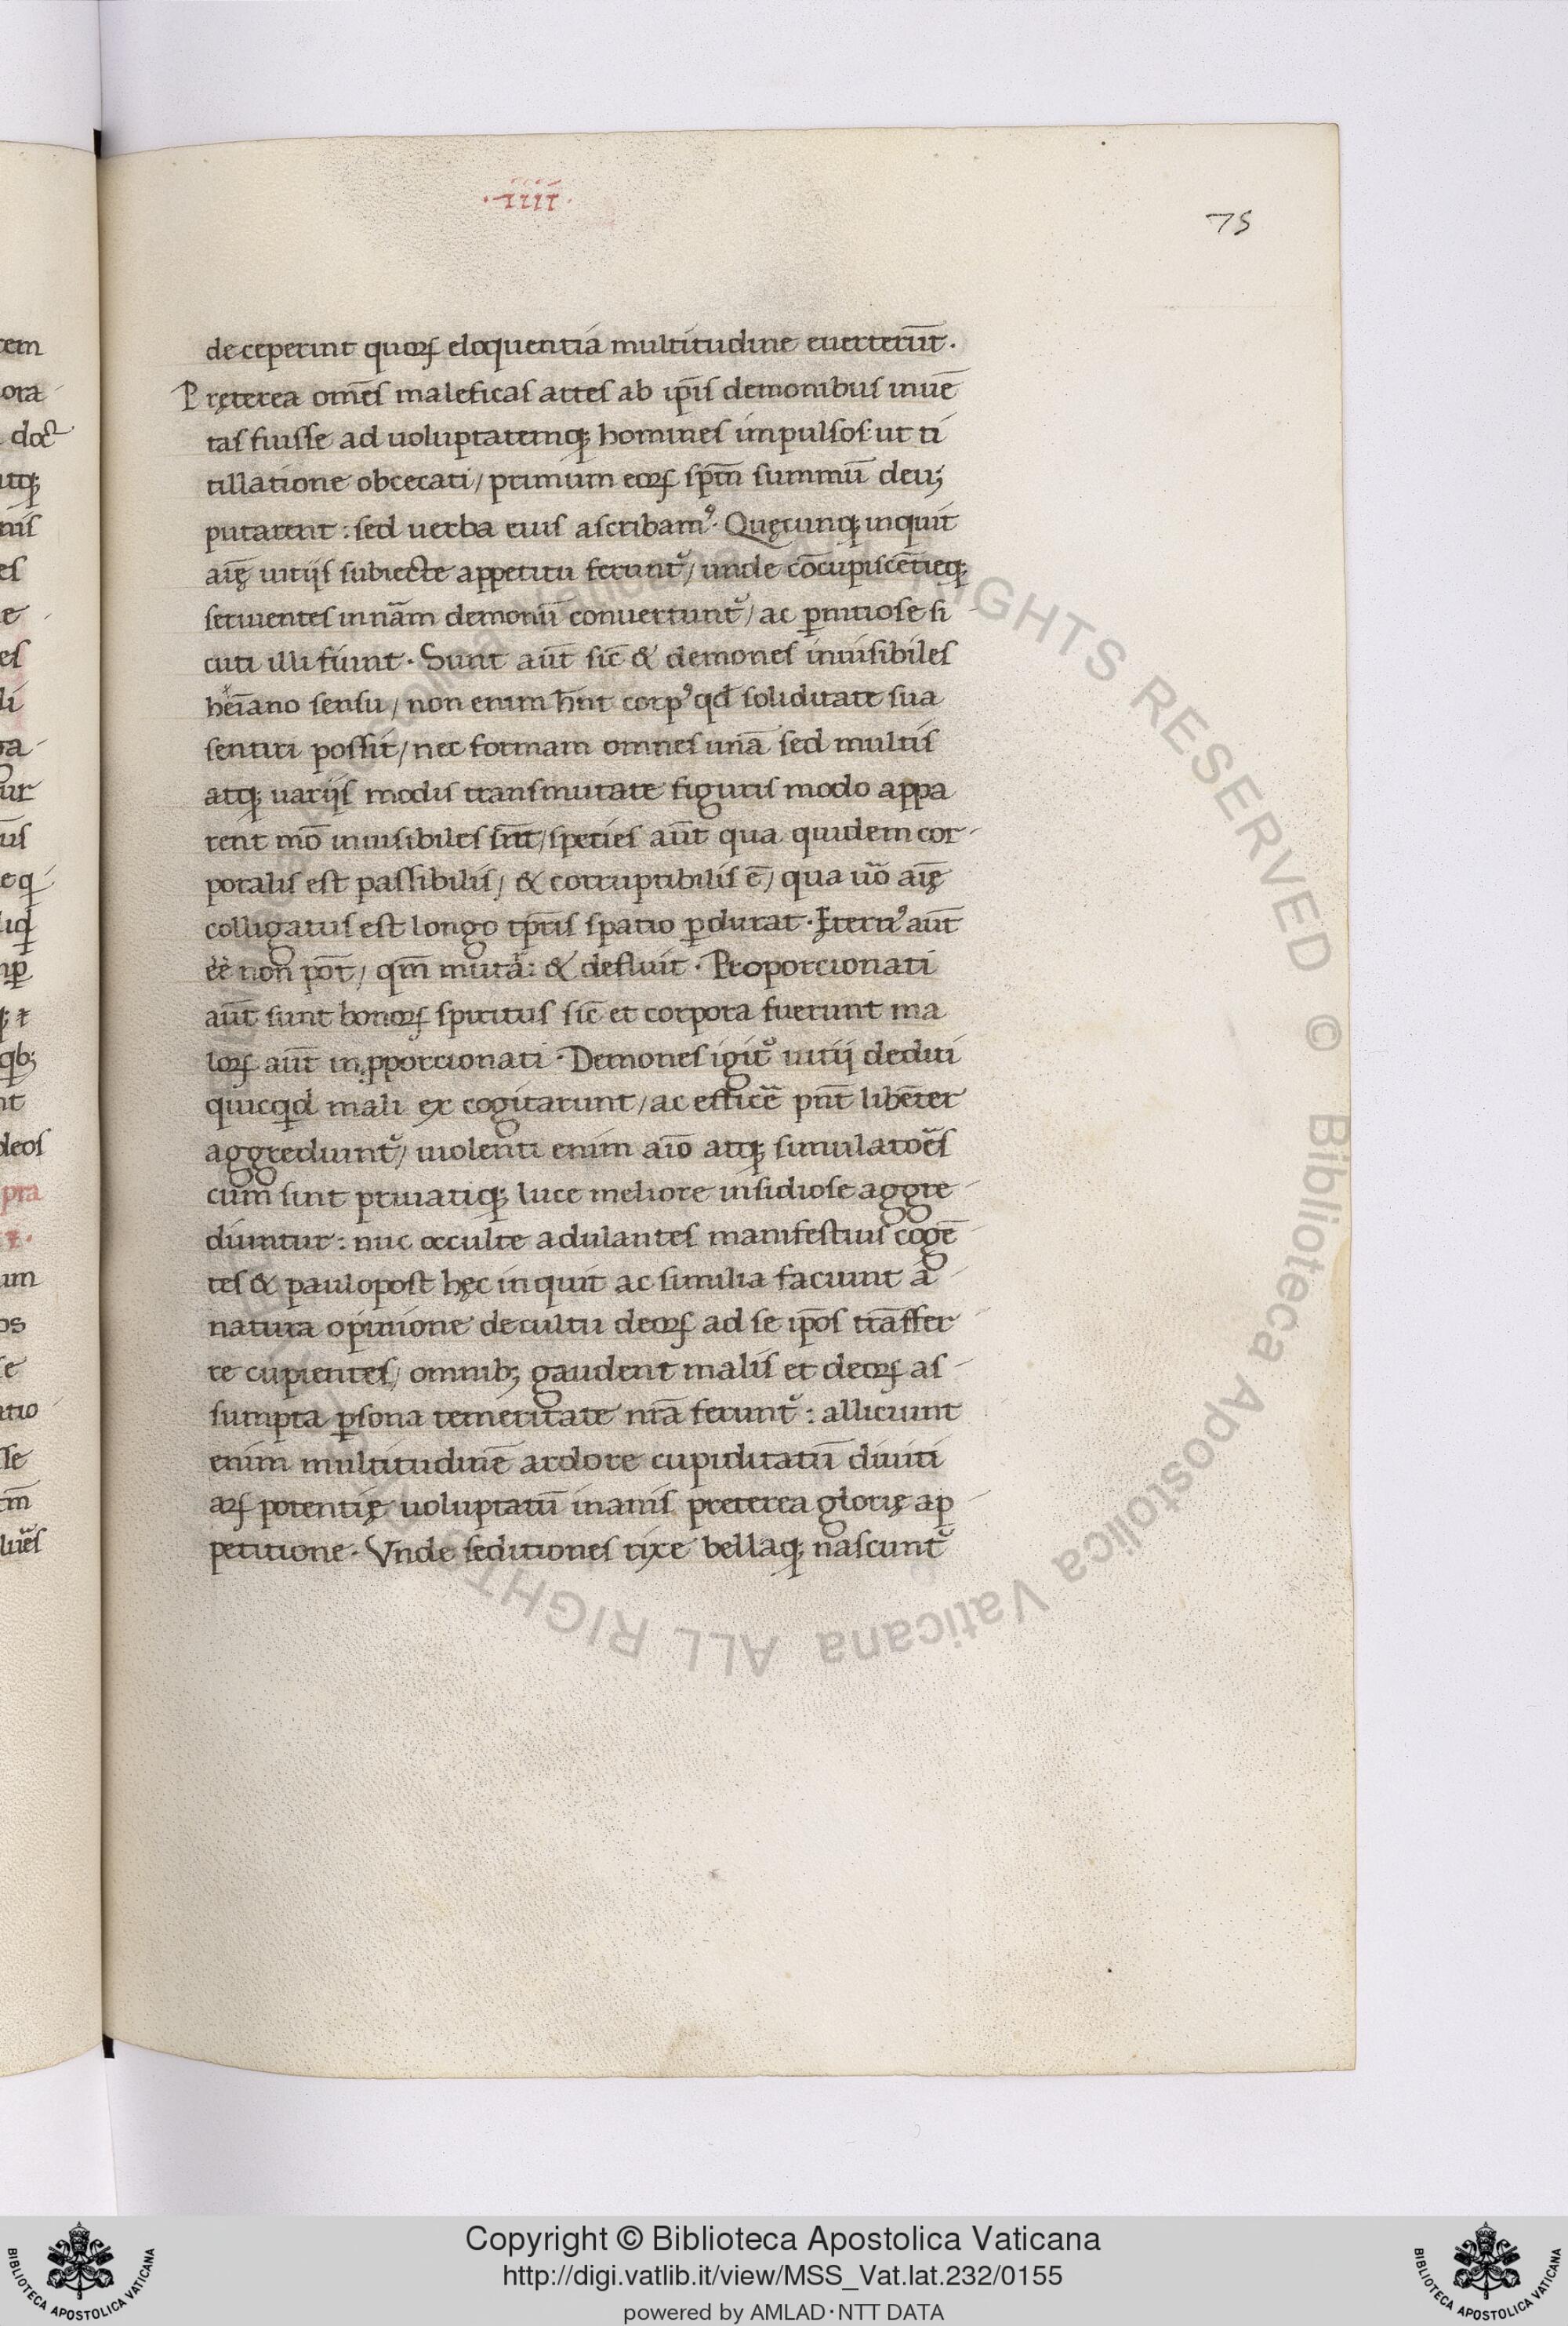 ·IIII·
75
deceperint quoꝝ eloquentia multitudine euerterūt.
Pręterea om̄es maleficas artes ab ip̄is demonibus inuē
tas fuisse ad uoluptatemqꝫ homines impulsos: ut ti
tillatione obcecati / primum eoꝝ sp̄m summū deuꝫ
putarent : sed uerba eius ascribamꝰ. Quęcunqꝫ inquit
aīę uitijs subiecte appetitu ferunt᷑ / unde cōcupiscētieqꝫ
seruientes in nām demonū conuertunt᷑ / ac ꝑnitiose si
cuti illi fiunt. Sunt aūt sic̄ & demones inuisibiles
sensu / non enim hn̄t corpꝰ qd̄ soliditate sua
sentiri possit / nec formam omnes unā sed multis
atqꝫ uarijs modis transmutate figuris modo appa
rent mō inuisibiles sn̄t / speties aūt qua quidem cor-
poralis est passibilis / & corruptibilis ē / qua uo᷑ aīę
colligatus est longo tp̄ris spatio ꝑdurat. Ęternꝰ aūt
eē non pōt / qm̄ mutat᷑ : & defluit. Proporcionati
aūt sunt bonoꝝ spiritus sic̄ et corpora fuerunt ma
loꝝ aūt inꝓporcionati. Demones igit᷑ uitij dediti
quicqd mali excogitarunt / ac efficē pn̄t libēter
aggrediunt᷑ / uiolenti enim aīo atqꝫ simulatoēs
cum sint priuatiqꝫ luce meliore insidiose aggre-
diuntur : nūc occulte adulantes manifestius cogē-
tes & paulopost hęc inquit ac similia faciunt a
natura opinione de cultu deoꝝ ad se ip̄os trāsfer-
re cupientes / omnibꝫ gaudent malis et deoꝝ as-
sumpta ꝑsona temeritate nr̄a ferunt᷑ : alliciunt
enim multitudinē ardore cupiditatū diuiti
aꝝ potentię uoluptatū inanis preterea glorię ap-
petitione. Vnde seditiones rixe bellaqꝫ nascunt᷑
Copyright © Biblioteca Apostolica Vaticana
http://digi.vatlib.it/view/MSS_Vat.lat.232/0155
powered by AMLAD·NTT DATA
BIBLIOTECA APOSTOLICA VATICANA
BIBLIOTECA APOSTOLICA VATICANA
ALL RIGHTS RESERVED © Biblioteca Apostolica Vaticana